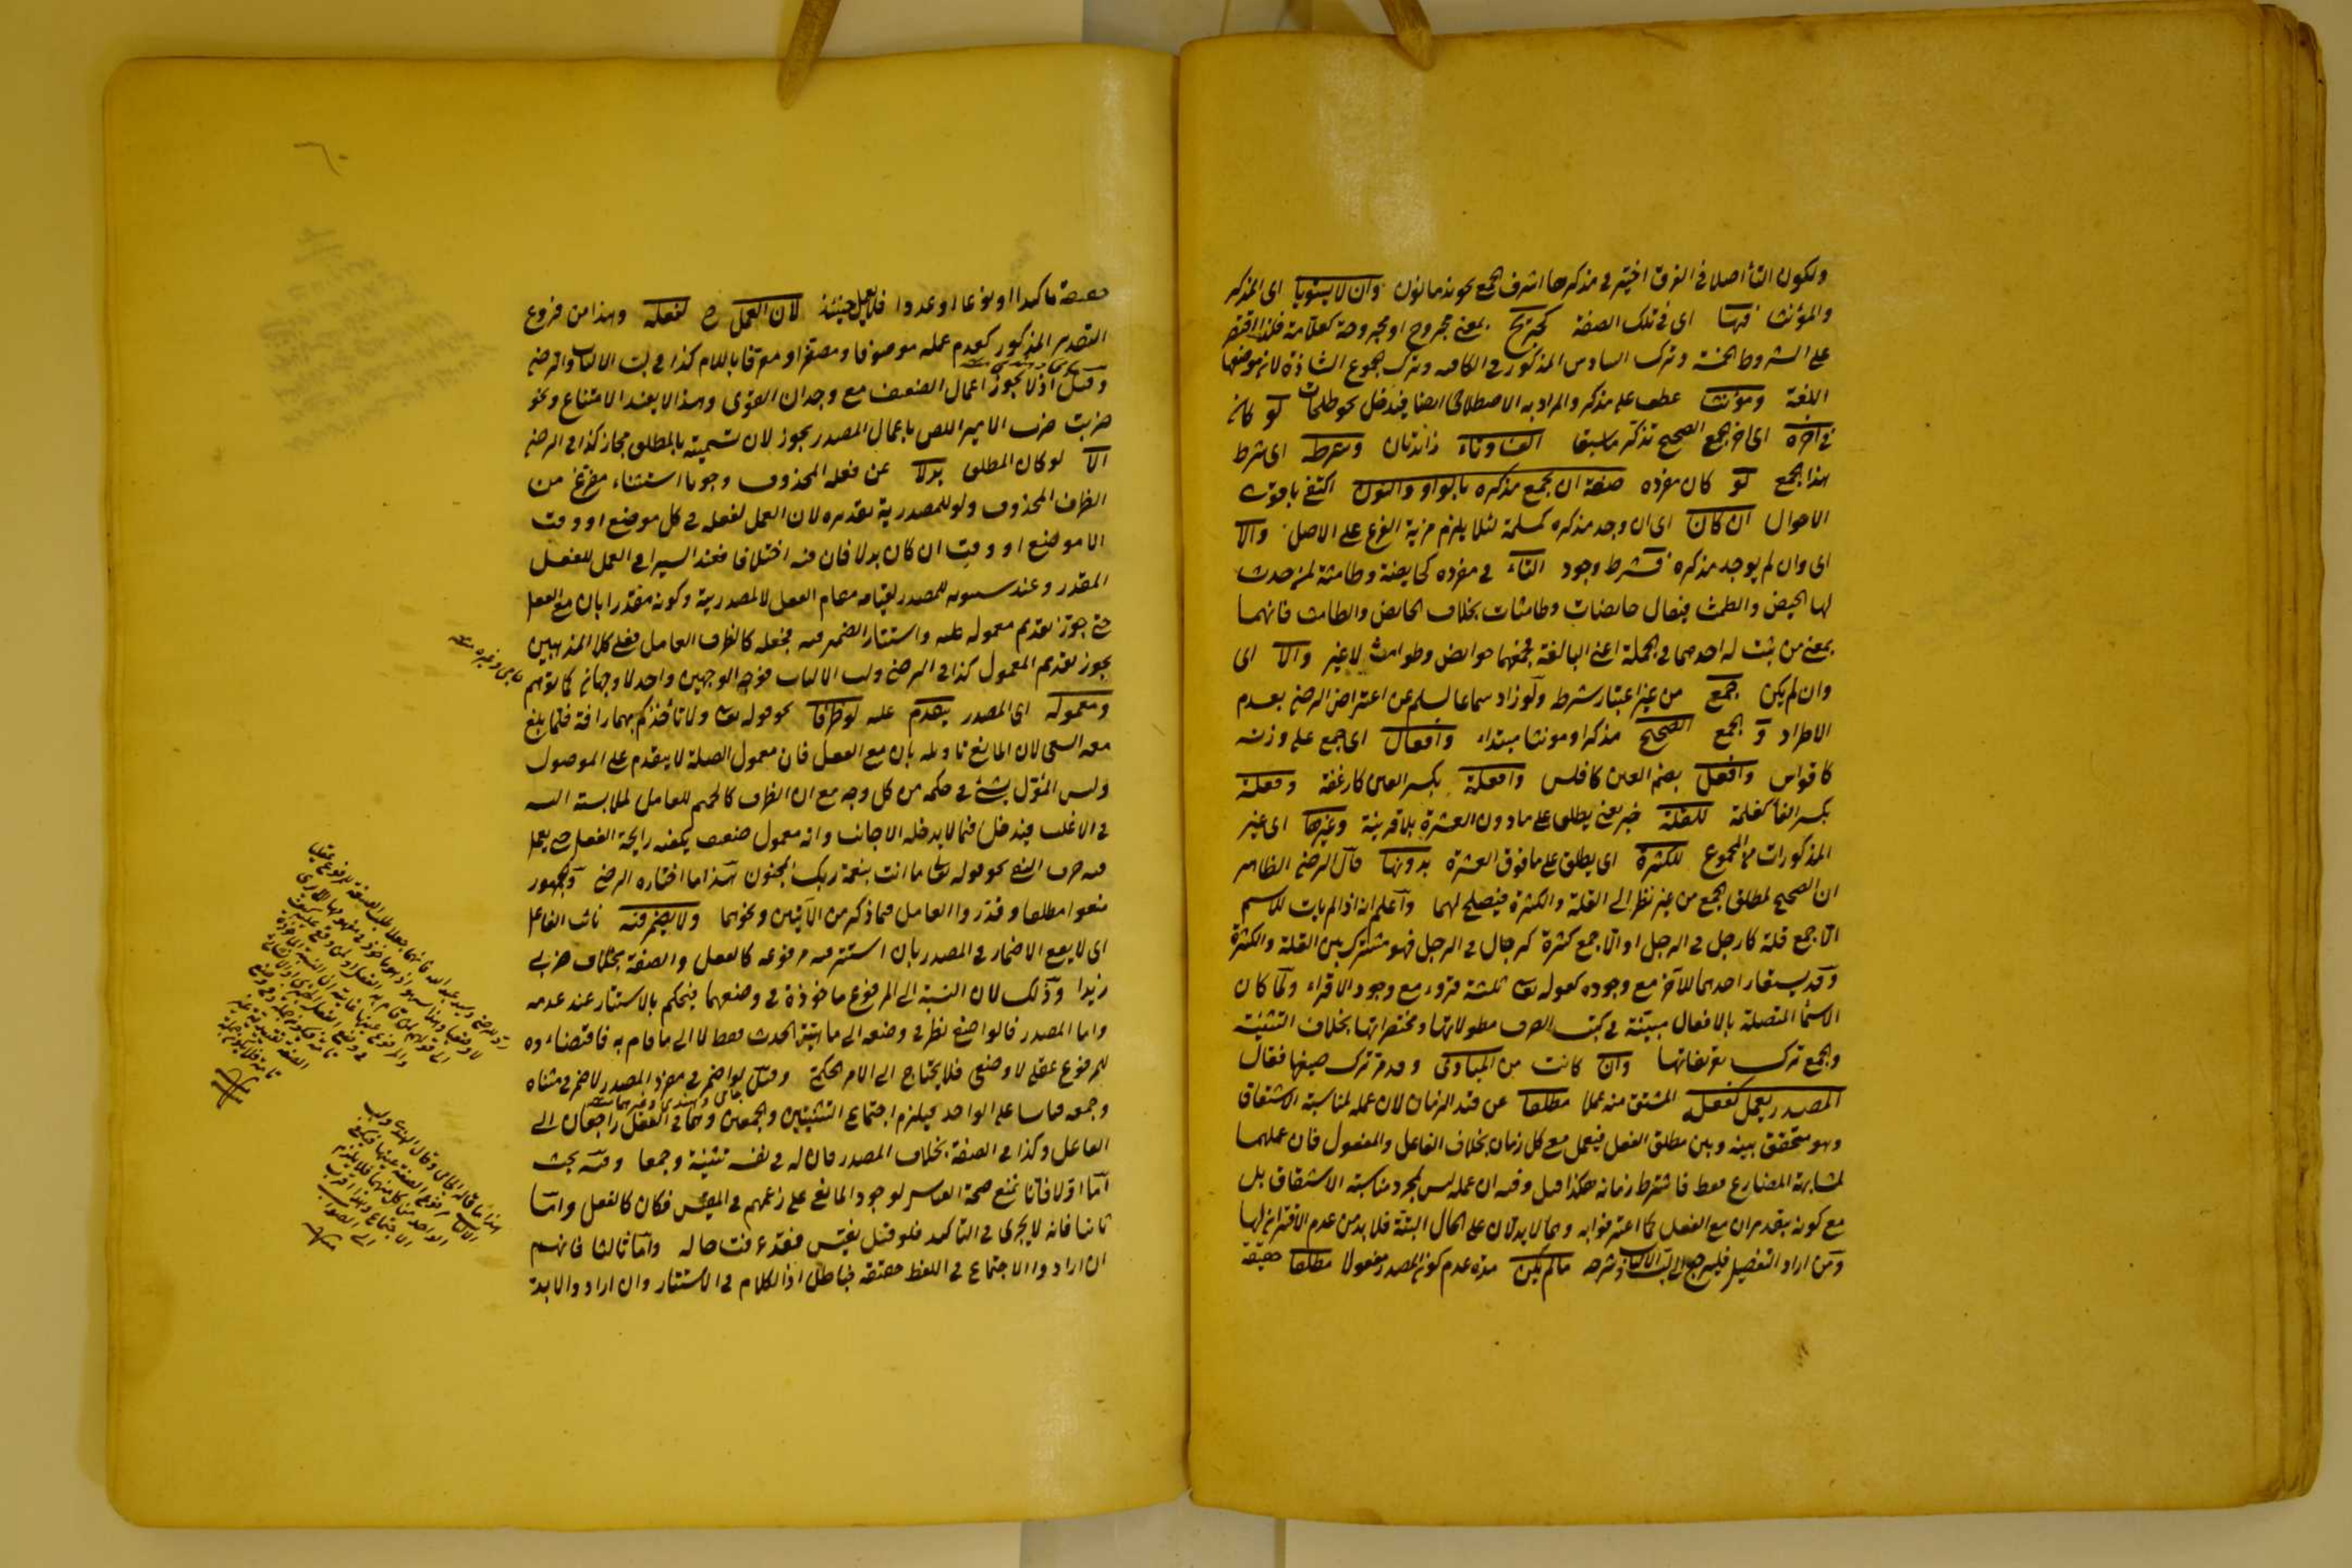 ولكون التاء اصلا في الفرق اختير في مذكرها اشرف الجمع نحو ندمانون وان لا يستويا اى المذكر
والمؤنث فيها اى في تلك الصفة كجريح بمعنى مجروح او مجروحة كعلامة فلذا اقتصر
على الشروط الخمسة وترك السادس المذكور في الكافيه وترك الجموع الشاذة لان موضعها
اللغة ومؤنث عطف على مذكر والمراد به الاصطلاحى ايضا فيدخل نحو طلحات لو كان
في آخره اى آخر الجمع الصحيح تذكر ما سبق الف وتاء زائدتان وشرطه اى شرط
هذا الجمع لو كان مفرده صفة ان يجمع مذكره بالواو والنون اكتفى باقوى
الاحوال ان كان اى ان وجد مذكره كمسلمة لئلا يلزم مزية الفرع على الاصل والا
اى وان لم يوجد مذكره فشرط وجود التاء في مفرده كحايضة وطامثة لمن حدث
لها الحيض والطمث فيقال حايضات وطامثات بخلاف الحايض والطامث فانهما
بمعنى من ثبت له احدهما في الجملة اعنى البالغة فجمعهما حوايض وطوامث لا غير والا اى
وان لم يكن جمع من غير اعتبار شرط ولو زاد سماعا ليسلم عن اعتراض الرضى بعدم
الاطراد و الجمع الصحيح مذكرا ومونثا مبتداء وافعال اى جمع على وزنه
كاقواس وافعل بضم العين كافلس وافعلة بكسر العين كارغفة وفعلة
بكسر الفاء كغلمة للقلة خبر يعنى يطلق على ما دون العشرة بلا قرينة وغيرها اى غير
المذكورات من الجموع للكثرة اى يطلق على ما فوق العشرة بدونها قال الرضى الظاهر
ان الصحيح لمطلق الجمع من غير نظر الى القلة والكثرة فيصلح لهما واعلم انه اذا لم يات للاسم
الا جمع قلة كارجل في الرجل او الا جمع كثرة كرجال في الرجل فهو مشترك بين القلة والكثرة
وقد يستعار احدهما للآخر مع وجوده كقوله تعالى ثلثة قروء مع وجود الاقراء ولما كان
الاسماء المتصلة بالافعال مبينة في كتب الصرف مطولاتها ومختصراتها بخلاف التثنية
والجمع ترك تعريفاتها وان كانت من المبادى وقد مر ترك صيغها فقال
المصدر يعمل كفعله المشتق منه عملا مطلقا عن قيد الزمان لان عمله لمناسبة الاشتقاق
وهو متحقق بينه وبين مطلق الفعل فيعمل مع كل زمان بخلاف الفاعل والمفعول فان عملهما
لمشابهة المضارع فقط فاشترط زمانه هكذا قيل وفيه ان عمله ليس لمجرد مناسبة الاشتقاق بل
مع كونه بتقدير ان مع الفعل كما اعترفوا به وهما لا يدلان على الحال البتة فلا بد من عدم الاقتران لها
ومن اراد التفصيل فليرجع الى لب الالباب وشرحه ما لم يكن مدة عدم كون المصدر مفعولا مطلقا حقيقة
حقيقة تاكيدا او نوعا او عددا فلا يعمل حينئذ لان العمل ح لفعله وهذا من فروع
التقدير المذكور كعدم عمله موصوفا ومصغرا ومعرفا باللام كذا في لب الالباب والرضى
وقيل اذ لا يجوز اعمال الضعيف مع وجدان القوى وهذا لا يفيد الامتناع ونحو
ضربت ضرب الامير اللص باعمال المصدر يجوز لان تسميته بالمطلق مجاز كذا في الرضى
الا لو كان المطلق بدلا عن فعله المحذوف وجوبا استثناء مفرغ من
الظرف المحذوف ولو للمصدرية تقديره لان العمل لفعله في كل موضع او وقت
الا موضع او وقت ان كان بدلا فان فيه اختلافا فعند السيرافى العمل للفعل
المقدر وعند سيبويه للمصدر لقيامه مقام الفعل لا لمصدريته وكونه مقدرا بان مع الفعل
حتى جوز تقديم معموله عليه واستتار الضمير فيه فجعله كالظرف العامل فعلى كلا المذهبين
يجوز تقديم المعمول كذا في الرضى ولب الالباب فوجه الوجهين واحد لا وجهان كما توهم
ومعموله اى المصدر يتقدم عليه لو ظرفا نحو قوله تعالى ولا تأخذكم بهما رافة فلما بلغ
معه السعى لان المانع تاويله بان مع الفعل فان معمول الصلة لا يتقدم على الموصول
وليس المؤول بشئ في حكمه من كل وجه مع ان الظرف كالمحرم للعامل لملابسته اليه
في الاغلب فيدخل فيما لا يدخله الاجانب وانه معمول ضعيف يكفيه رايحة الفعل حتى يعمل
فيه حرف النفى نحو قوله تعالى ما انت بنعمة ربك بمجنون هذا ما اختاره الرضى والجمهور
منعوا مطلقا وقدروا العامل فيما ذكر من الآيتين ونحوهما ولا يضمر فيه نائب الفاعل
اى لا يقع الاضمار في المصدر بان استتر فيه مرفوعه كالفعل والصفة بخلاف ضربى
زيدا وذلك لان النسبة الى المرفوع ماخوذة في وضعهما فيحكم بالاستتار عند عدمه
واما المصدر فالواضع نظر في وضعه الى ماهية الحدث فقط لا الى ما قام به فاقتضاءه
للمرفوع عقلى لا وضعى فلا يحتاج الى الامر الحكمى وقيل لو اضمر في مفرد المصدر لاضمر في مثناه
وجمعه قياسا على الواحد فيلزم اجتماع التثنيتين والجمعين وهما في الفعل راجعان الى
الفاعل وكذا في الصفة بخلاف المصدر فان له في نفسه تثنية وجمعا وفيه بحث
اما اولا فانا نمنع صحة القياس لوجود المانع على زعمهم في المقيس فكان كالفعل واما
ثانيا فانه لا يجرى في التاكيد فلو قيل يقيس فقد عرفت حاله واما ثالثا فانهم
ان ارادوا الاجتماع في اللفظ حقيقة فباطل اذ الكلام في الاستتار وان ارادوا لابد